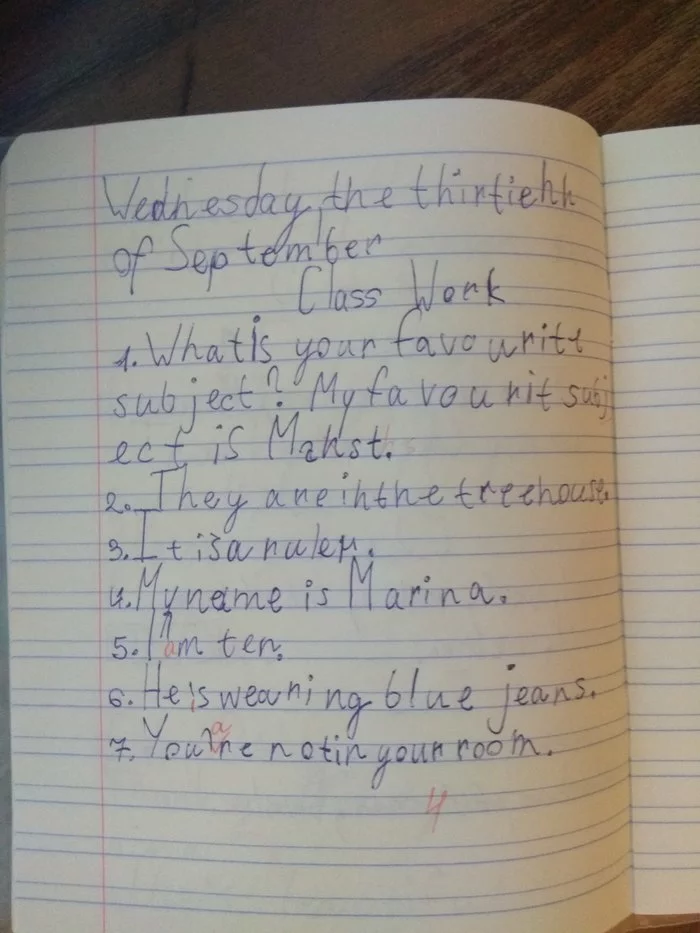 Wednesday, the thirtieht
of September
Class Work
1. What is your favourite
subject? My favourit subj
ect is Mahst.
2. They are in the treehouse.
3. It is a ruler.
4. My name is Marina.
5. I'am ten.
6. He is wearing blue jeans.
7. You'are not in your room.
4